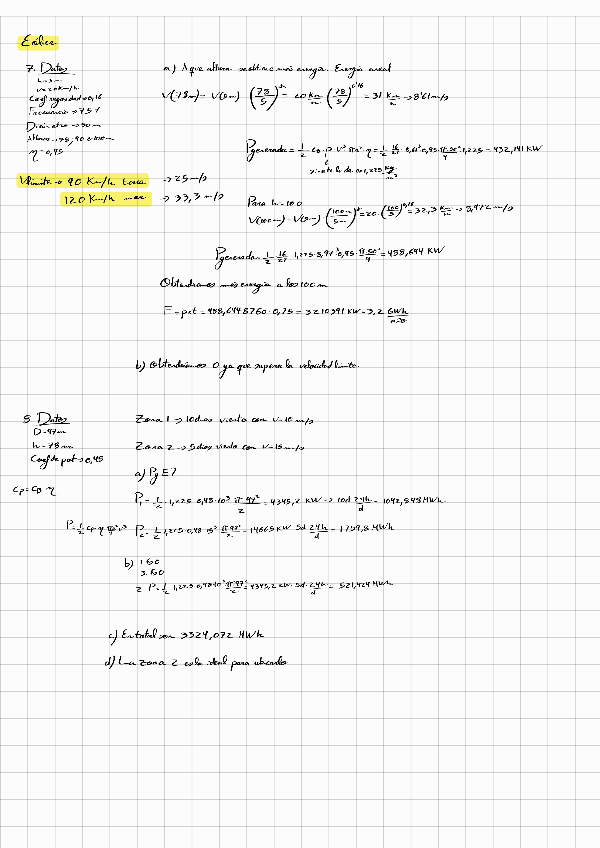 Eólica
7. Datos
h=5m
v=20km/h
Coef rugosidad=0,16
Frecuencia=>75%
Diámetro->90m
Alturas->78, 90 o 100m
η=0,95
Vlimite-> 90 Km/h
-> 25m/s
120 Km/h max
-> 33,3 m/s
a) A que altura se obtiene más energía. Energía anual
V(78m)= V(5m) (78/5)^α = 20 Km/h (78/5)^0,16 = 31 Km/h -> 8,61m/s
Pgenerada = 1/2 · cp · ρ · V³ · π·D² · η = 1/2 · 16/27 · 8,61³ · 0,95 · π·90²/4 · 1,225 = 432,141 KW
Para h=100
V(100m) = V(5m) (100m/5m)^α = 20 · (100/5)^0,16 = 32,3 Km/h -> 8,972 m/s
Pgenerada = 1/2 · 16/27 · 1,225 · 8,97³ · 0,95 · π·90²/4 = 488,644 KW
Obtendríamos más energía a los 100m
E=pot = 488,644·8760 · 0,75 = 3210391 KW = 3,2 GWh/año
b) Obtendríamos 0 ya que supera la velocidad limite.
8. Datos
D=97m
h=78m
Coef de pot=>0,48
Cp=Cp·η
Zona 1 -> 10 dias viento con v=10 m/s
Zona 2 -> 5 dias viento con v=15 m/s
a) P y E?
P₁ = 1/2 · 1,225 · 0,48 · 10³ π·97²/2 = 4345,2 KW -> 10d 24h/d = 1042,848 MWh
P = 1/2 cp·η πρr²v³
P₂ = 1/2 1,225·0,48 15³ π·97²/2 = 14665 KW 5d 24h/d = 1759,8 MWh
b) 1. 5D
3. 5D
2 P = 1/2 1,225·0,48·10³ π·97²/2 = 4345,2 KW · 5d · 24h/d = 521,424 MWh
c) En total son 3324,072 MWh
d) La zona 2 es la ideal para ubicarlo